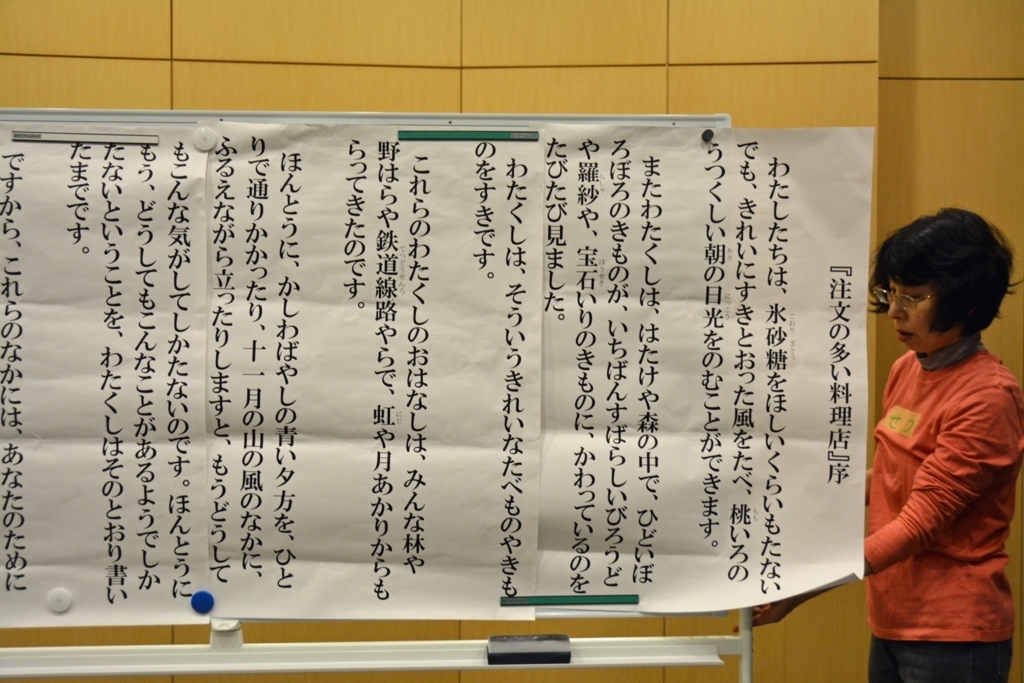 『注文の多い料理店』序
わたしたちは、氷砂糖をほしいくらいもたない
でも、きれいにすきとおった風をたべ、桃いろの
うつくしい朝の日光をのむことができます。
またわたくしは、はたけや森の中で、ひどいぼ
ろぼろのきものが、いちばんすばらしいびろうど
や羅紗や、宝石いりのきものに、かわっているのを
たびたび見ました。
わたくしは、そういうきれいなたべものやきも
のをすきです。
これらのわたくしのおはなしは、みんな林や
野はらや鉄道線路やらで、虹や月あかりからも
らってきたのです。
ほんとうに、かしわばやしの青い夕方を、ひと
りで通りかかったり、十一月の山の風のなかに、
ふるえながら立ったりしますと、もうどうして
もこんな気がしてしかたないのです。ほんとうに
もう、どうしてもこんなことがあるようでしか
たないということを、わたくしはそのとおり書い
たまでです。
ですから、これらのなかには、あなたのために